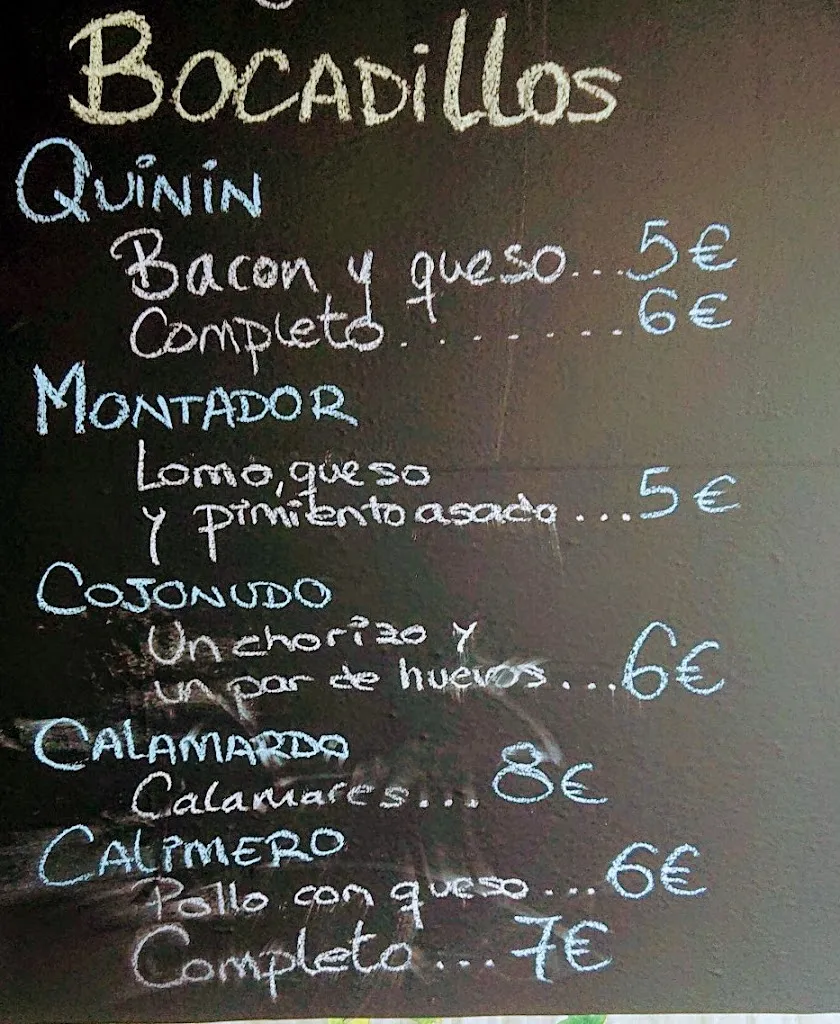 BOCADiLLOS
QUiNiN
Bacon y queso...5€
Completo.........6€
MONTADOR
Lomo,queso
y pimiento asado...5€
COJONUDO
Un chorizo y
un par de huevos....6€
CALAMARDO
Calamares...8€
CALiMERO
Pollo con queso...6€
Completo...7€